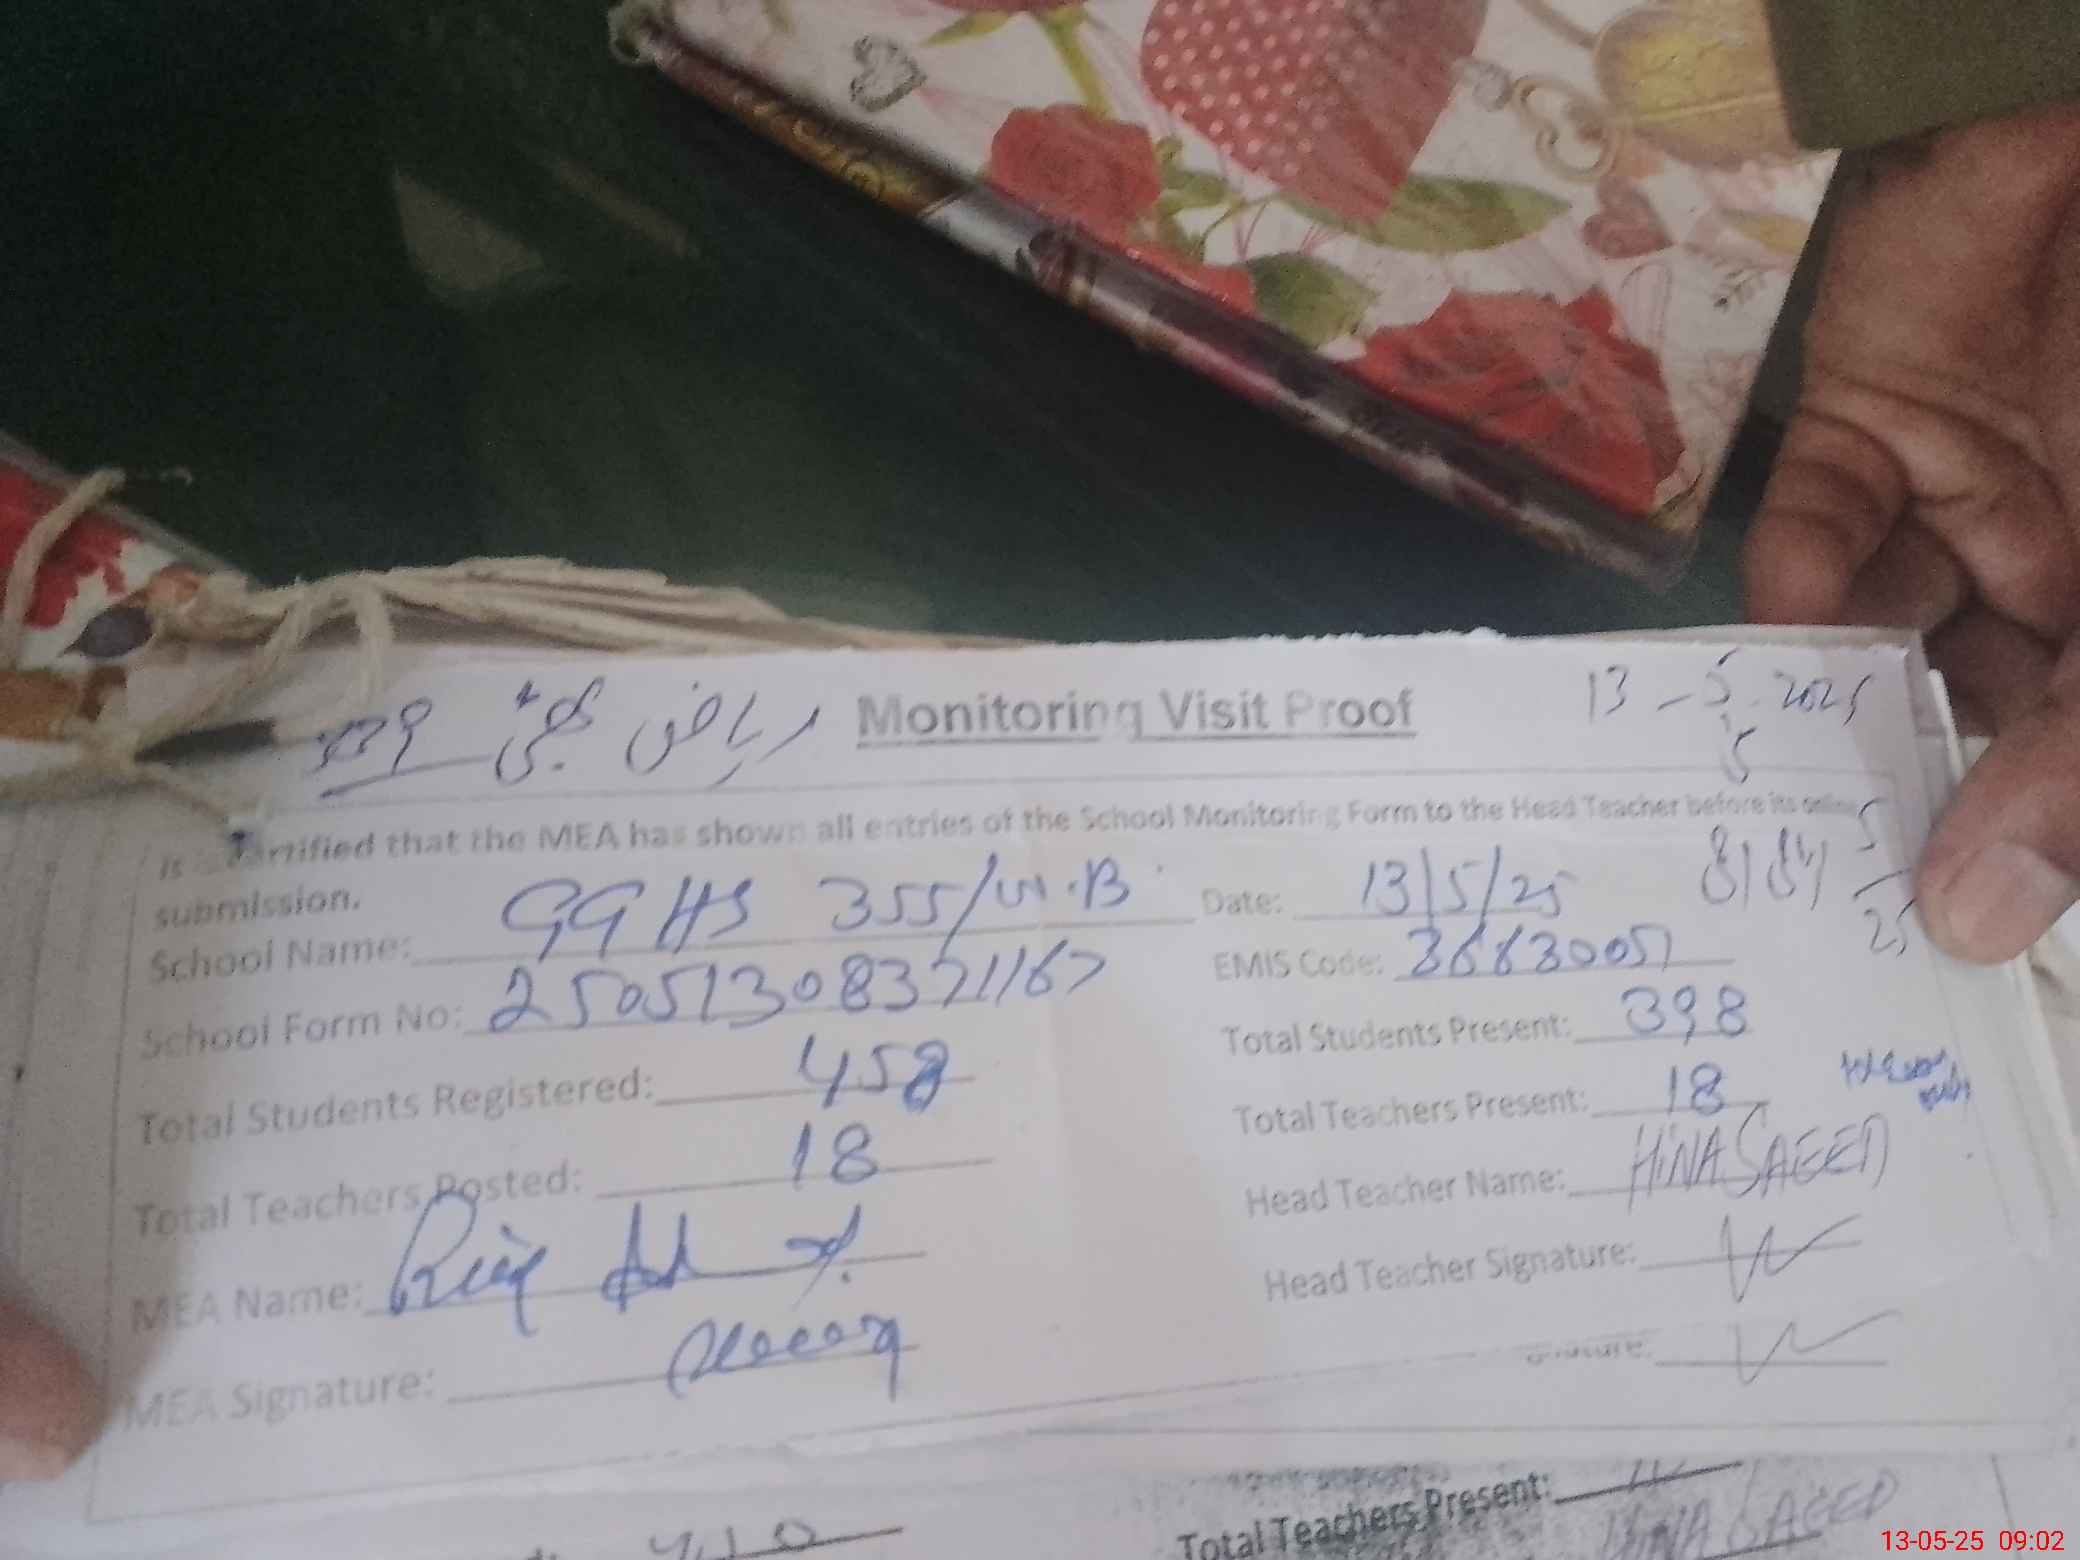 ریاض Monitoring Visit Proof 13-5-2025
5
is certified that the MEA has shown all entries of the School Monitoring Form to the Head Teacher before its online
submission.
School Name: GGHS 355/W.B Date: 13/5/25
5
25
School Form No: 25051308371167 EMIS Code: 36630051
Total Students Registered: 458 Total Students Present: 398
Total Teachers Posted: 18 Total Teachers Present: 18
MEA Name: Head Teacher Name: HINA SAEED
MEA Signature: Head Teacher Signature:
Signature:
Total Teachers Present:
HINA SAEED
13-05-25 09:02